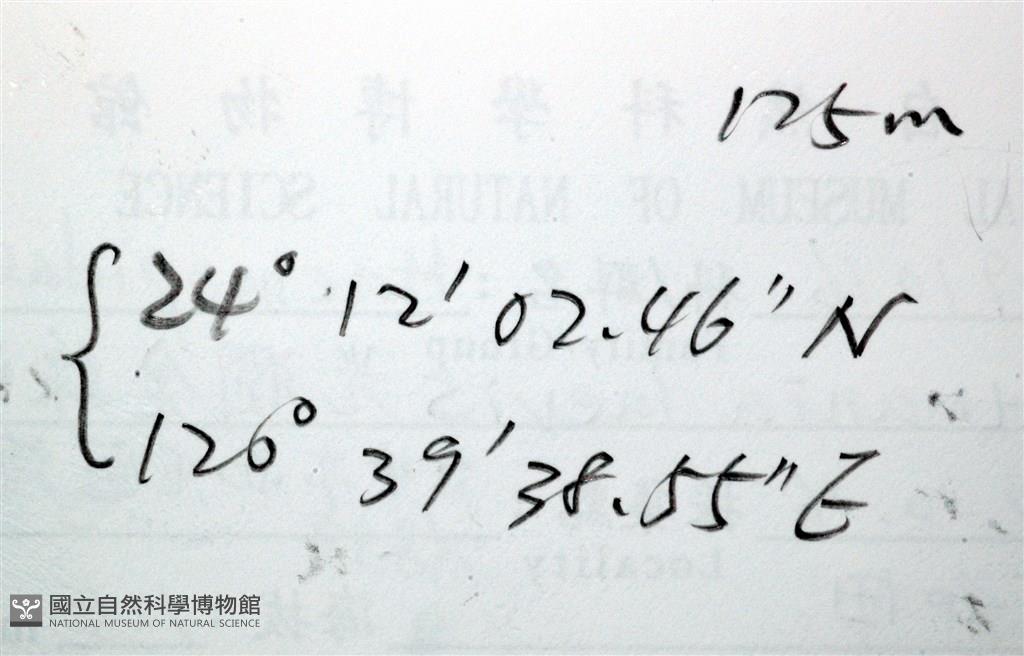 125m
24° 12' 02.46" N
120° 39' 38.55" E
國立自然科學博物館
NATIONAL MUSEUM OF NATURAL SCIENCE